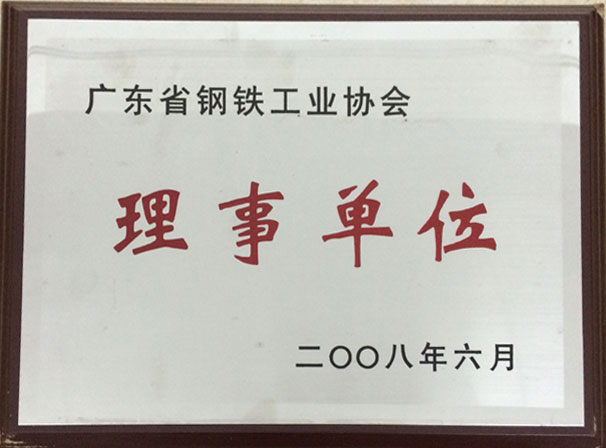 广东省钢铁工业协会
理事单位
二〇〇八年六月